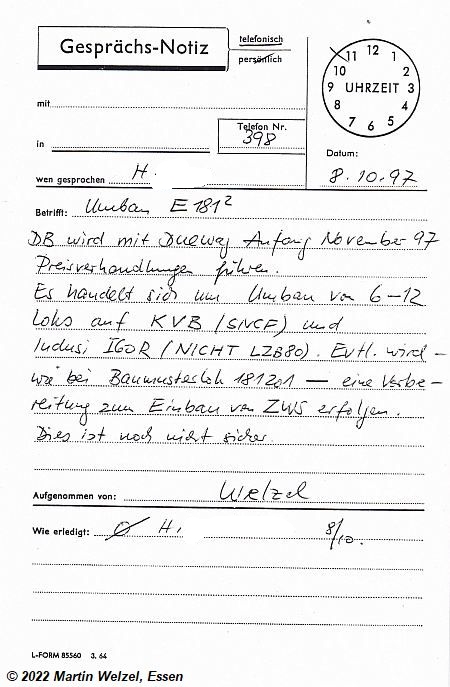 Gesprächs-Notiz
telefonisch
persönlich
12
11 1
10 2
9 UHRZEIT 3
8 4
7 6 5
mit
in
Telefon Nr.
398
Datum:
wen gesprochen H. 8.10.97
Betrifft: Umbau E 181²
DB wird mit Duewag Anfang November 97
Preisverhandlungen führen.
Es handelt sich um Umbau von 6-12
Loks auf KVB (SNCF) und
Indusi I60R (NICHT LZB80). Evtl. wird -
wie bei Baumusterlok 181201 — eine Vorbe-
reitung zum Einbau von ZWS erfolgen.
Dies ist noch nicht sicher.
Aufgenommen von: Welzel
Wie erledigt: H. 8/10.
L-FORM 85560 3. 64
© 2022 Martin Welzel, Essen